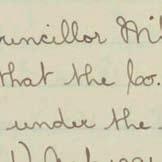 ouncillor Mi
that the Co.
under the